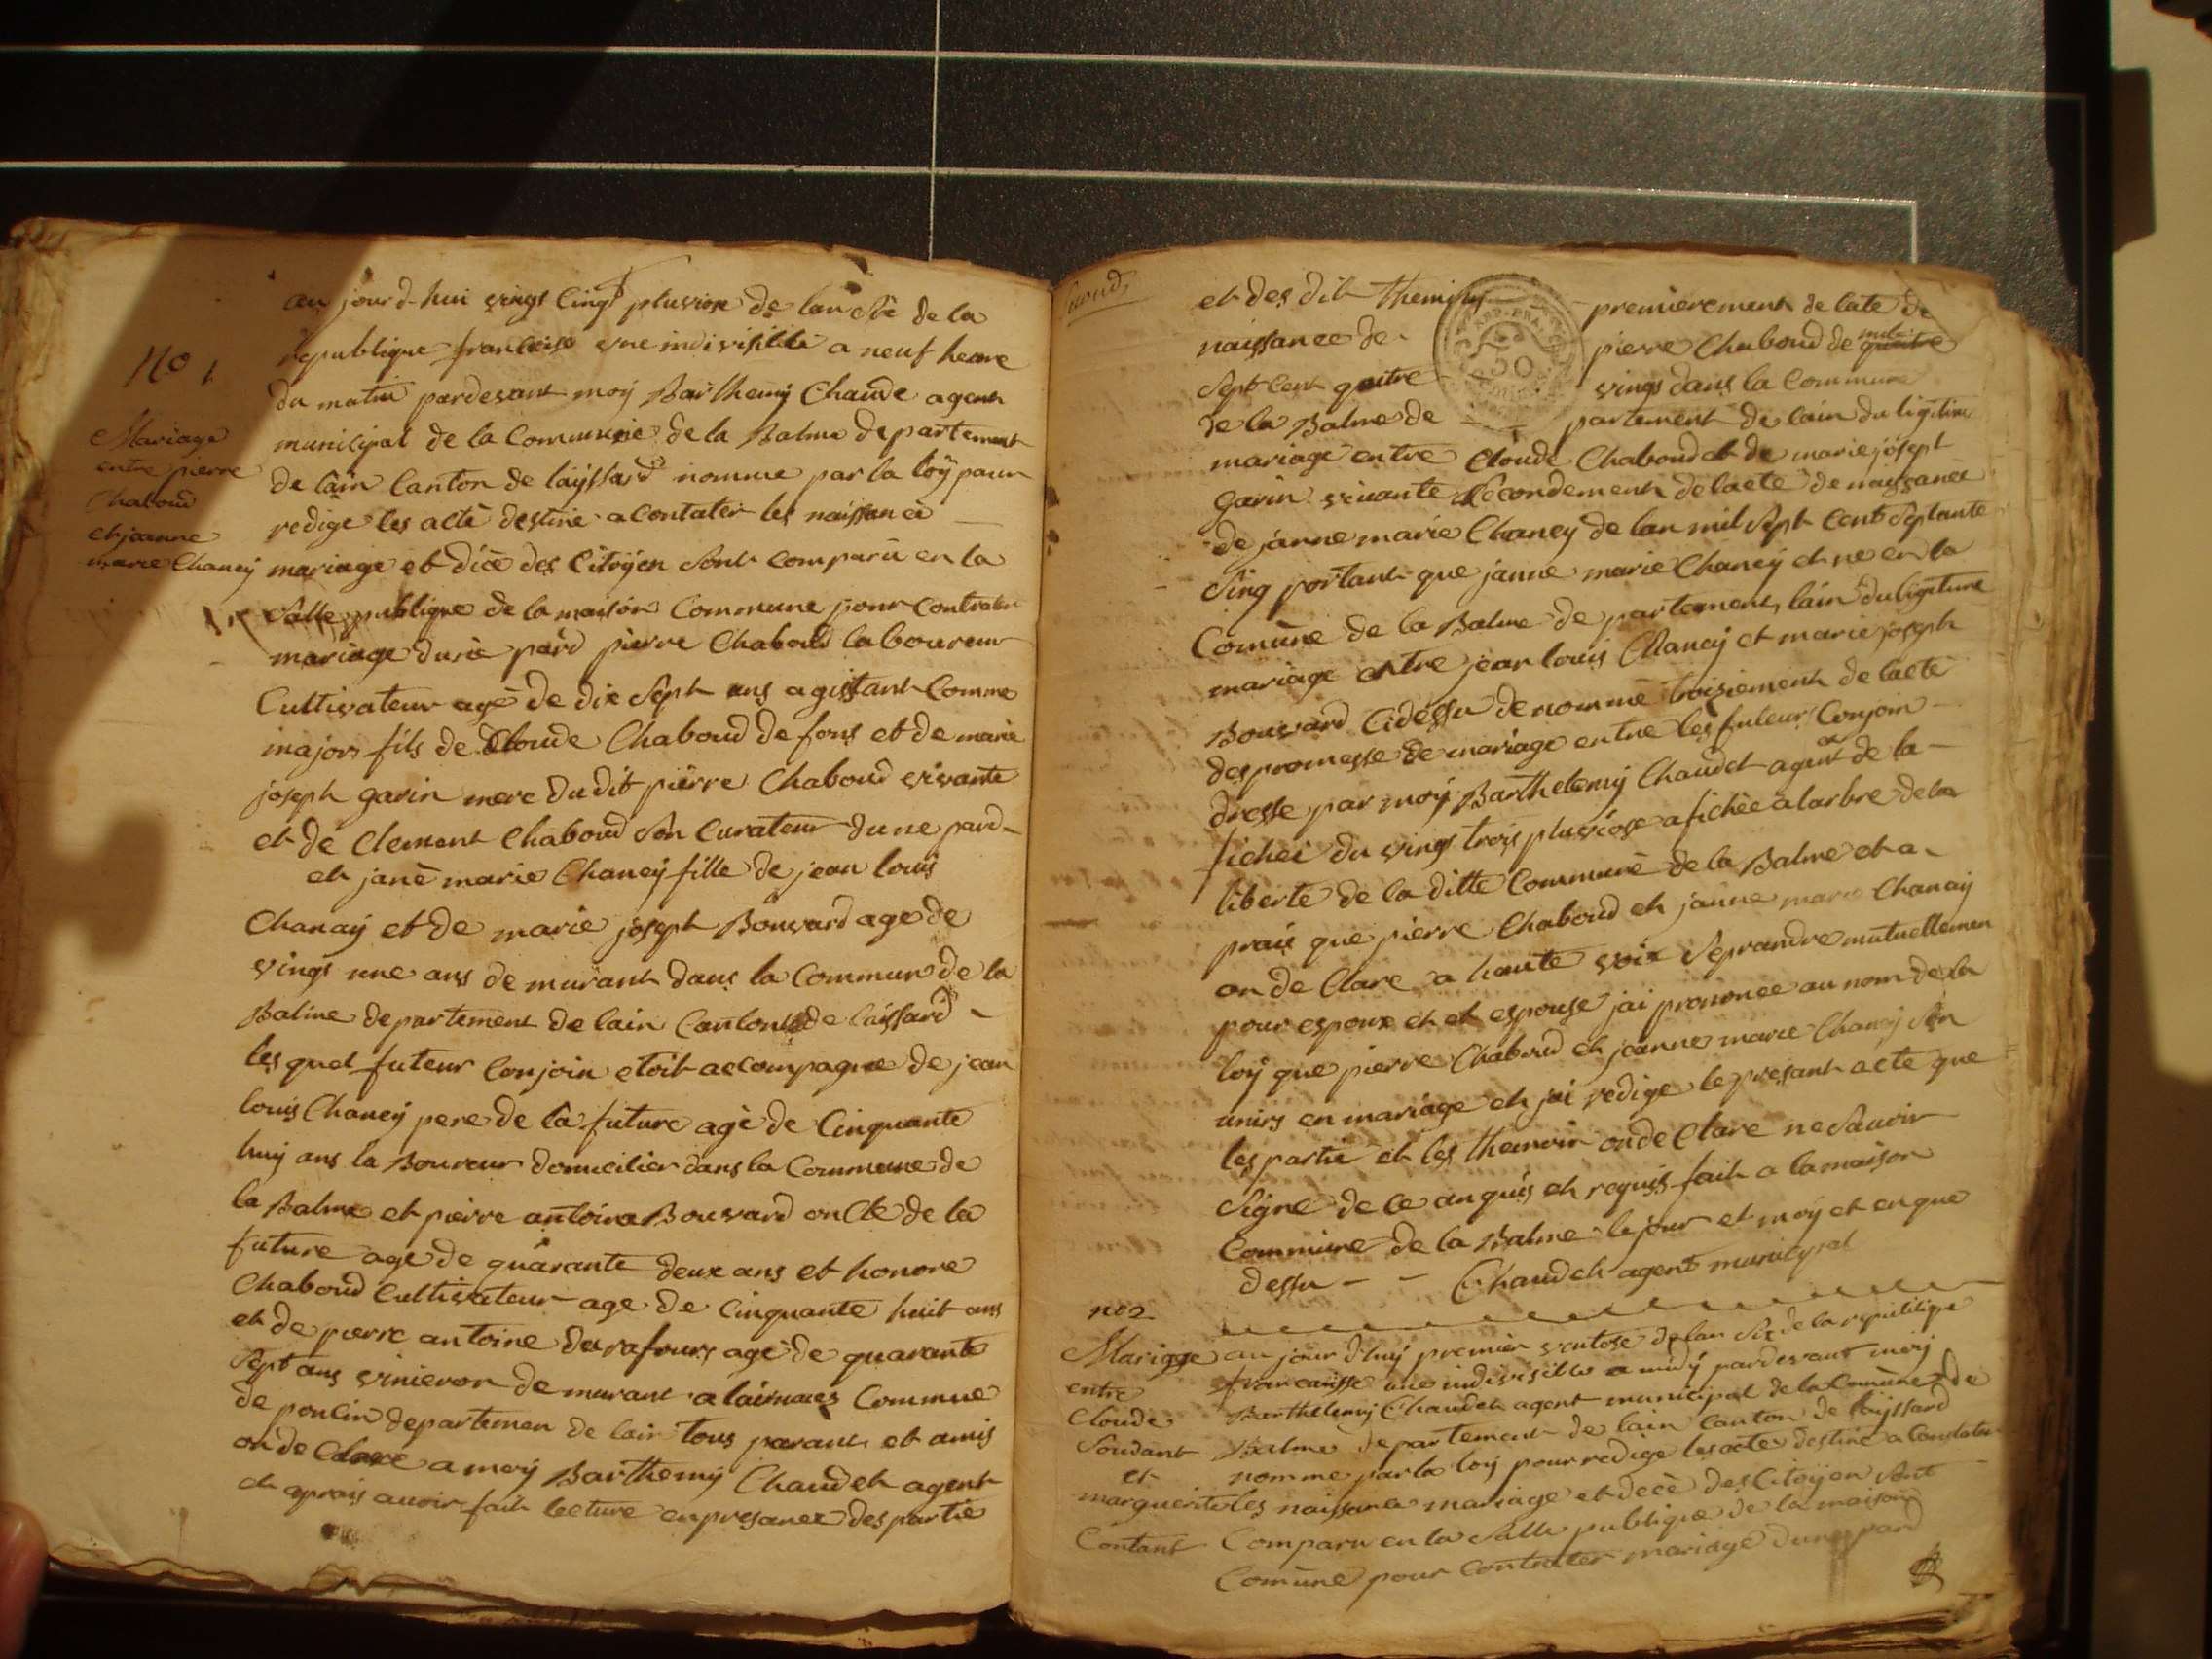 au jour d-hui vings cinq pluviose de lan Sie de la
republique francaise une indivisible a neuf heure
No 1
du matin pardevant moÿ Barthemÿ Chaude agent
Mariage
entre pierre
Chaboud
et jeanne
marie Chaneÿ
municipal de la Commune de la Balme departement
de lain Canton de laÿssard nomme par la loÿ pour
redige les actè destine a contater les naissance
mariage et dicè des Citoÿen Sont comparû en la
Salle publique de la maison Commune pour Contrater
mariage dune pard pierre Chaboud laboureur
Cultivateur agè de dix Sept ans agissant Comme
major fils de Cloude Chaboud de fons et de marie
joseph gavin mere du dit pierre Chaboud vivante
et de Clement Chaboud Son Curateur dune pard
et janè marie Chaneÿ fille de jean louis
Chanaÿ et de marie joseph Bouvard age de
vings une ans de murant dans la Commun de la
Balme departement de lain Canton de laissard
les quel futeur Conjoin etoit accompagne de jean
louis Chaneÿ pere de la future agè de Cinquante
huiÿ ans la Boureur domicilier dans la Commune de
la Balme et pierre antoine Bouvard oncle de la
future age de quarante deux ans et honore
Chaboud Cultivateur age de Cinquante huit ans
et de pierre antoine durafours agè de quarante
Sept ans vinieron de murant a Commue
de poncin departemen de lain tous parant et amis
on de Clare a moÿ Barthemÿ Chaudet agent
et aprais avoir fait lecture en presance des partie
et des dit themins premierement de late de
naissance de pierre Chaboud de mile quatre
Sept Cent quatre vings dans la Commune
de la Balme de partement de lain du ligitime
mariage entre Cloude Chaboud et de marie jósept
Gavin vivante Secondement de lacte de naissance
de janne marie Chaney de lan mil Sept Cent Septante
Sing portant que janne marie Chaneÿ et ne en la
Comùne de la Balme de partement lain du ligitime
mariage entre jean louis Chanaÿ et marie joseph
Bouvard Cidessu denomme troisiement de lacte
des promesse de mariage entre les futeur Conjoin
dresse par moÿ Barthelemÿ Chaudet agent de la
fichei du vings trois pluviose afichèe a larbre de la
liberte de la ditte Commune de la Balme et a
prais que pierre Chaboud et janne marie Chanaÿ
on de Clare a haute voix Seprandre mutuellemen
pour espoux et et espouse jai prononce au nom de la
loÿ que pierre Chaboud et jeanne marie Chaneÿ Son
unirs en mariage et jai redige le presant acte que
les partie et les themoin on de Clare ne Savoir
Signe de ce anquis et requis fait a la maison
Commune de la Balme le jour et moÿ et en que
dessu - - Chaudet agent municipal
no 2
Mariage
entre
Cloude
Soudant
et
marguerite
Contant
au jour d'huÿ premier ventose de lan Six de la republique
francaisse une indivisible a midÿ pardevant moÿ
Barthelemÿ Chaudet agent municipal de la Comùne de
Balme departement de lain Canton de laÿssard
nomme par la loÿ pour redige les acte destine a Contater
les naissance mariage et decè des Citoÿen Sont
Comparu en la Salle publique de la maison
Comùne pour Contrater mariage dune pard